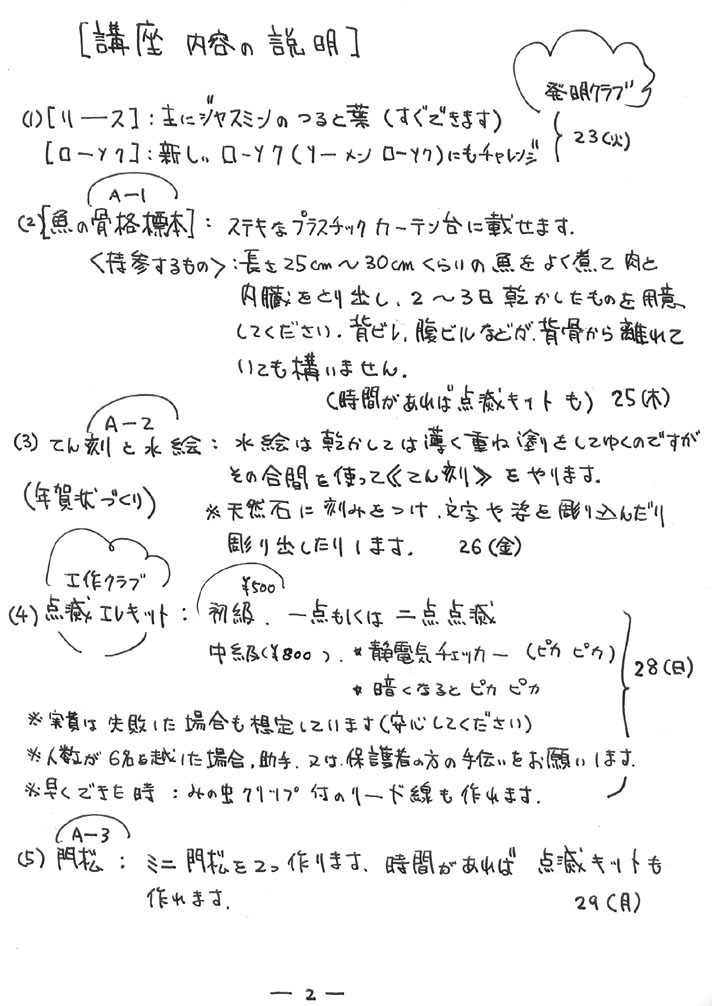 [講座 内容の説明]
発明クラブ
(1)[リース]:主にジャスミンのつると葉(すぐできます)
[ローソク]:新しいローソク(ソーメンローソク)にもチャレンジ
23(火)
A-1
(2)[魚の骨格標本]: ステキなプラスチックカーテン台に載せます.
〈持参するもの〉:長さ25cm〜30cmくらいの魚をよく煮て肉と
内臓をとり出し、2〜3日乾かしたものを用意
してください.背ビレ,腹ビルなどが、背骨から離れて
いても構いません.
(時間があれば点滅キットも) 25(木)
A-2
(3) てん刻と水絵: 水絵は乾かしては薄く重ね塗りをしてゆくのですが
その合間を使って《てん刻》をやります.
(年賀状づくり)
※天然石に刻みをつけ、文字や姿を彫り込んだり
彫り出したりします. 26(金)
工作クラブ
¥500
(4) 点滅エレキット: 初級. 一点もしくは二点点滅
中級(¥800). *静電気チェッカー(ピカピカ)
*暗くなるとピカピカ
28(日)
※実費は失敗した場合も想定しています(安心してください)
※人数が6名を越した場合,助手.又は.保護者の方の手伝いをお願いします.
※早くできた時:みの虫クリップ付のリード線も作れます.
A-3
(5) 門松: ミニ門松を2つ作ります、時間があれば 点滅キットも
作れます.
29(月)
— 2 —